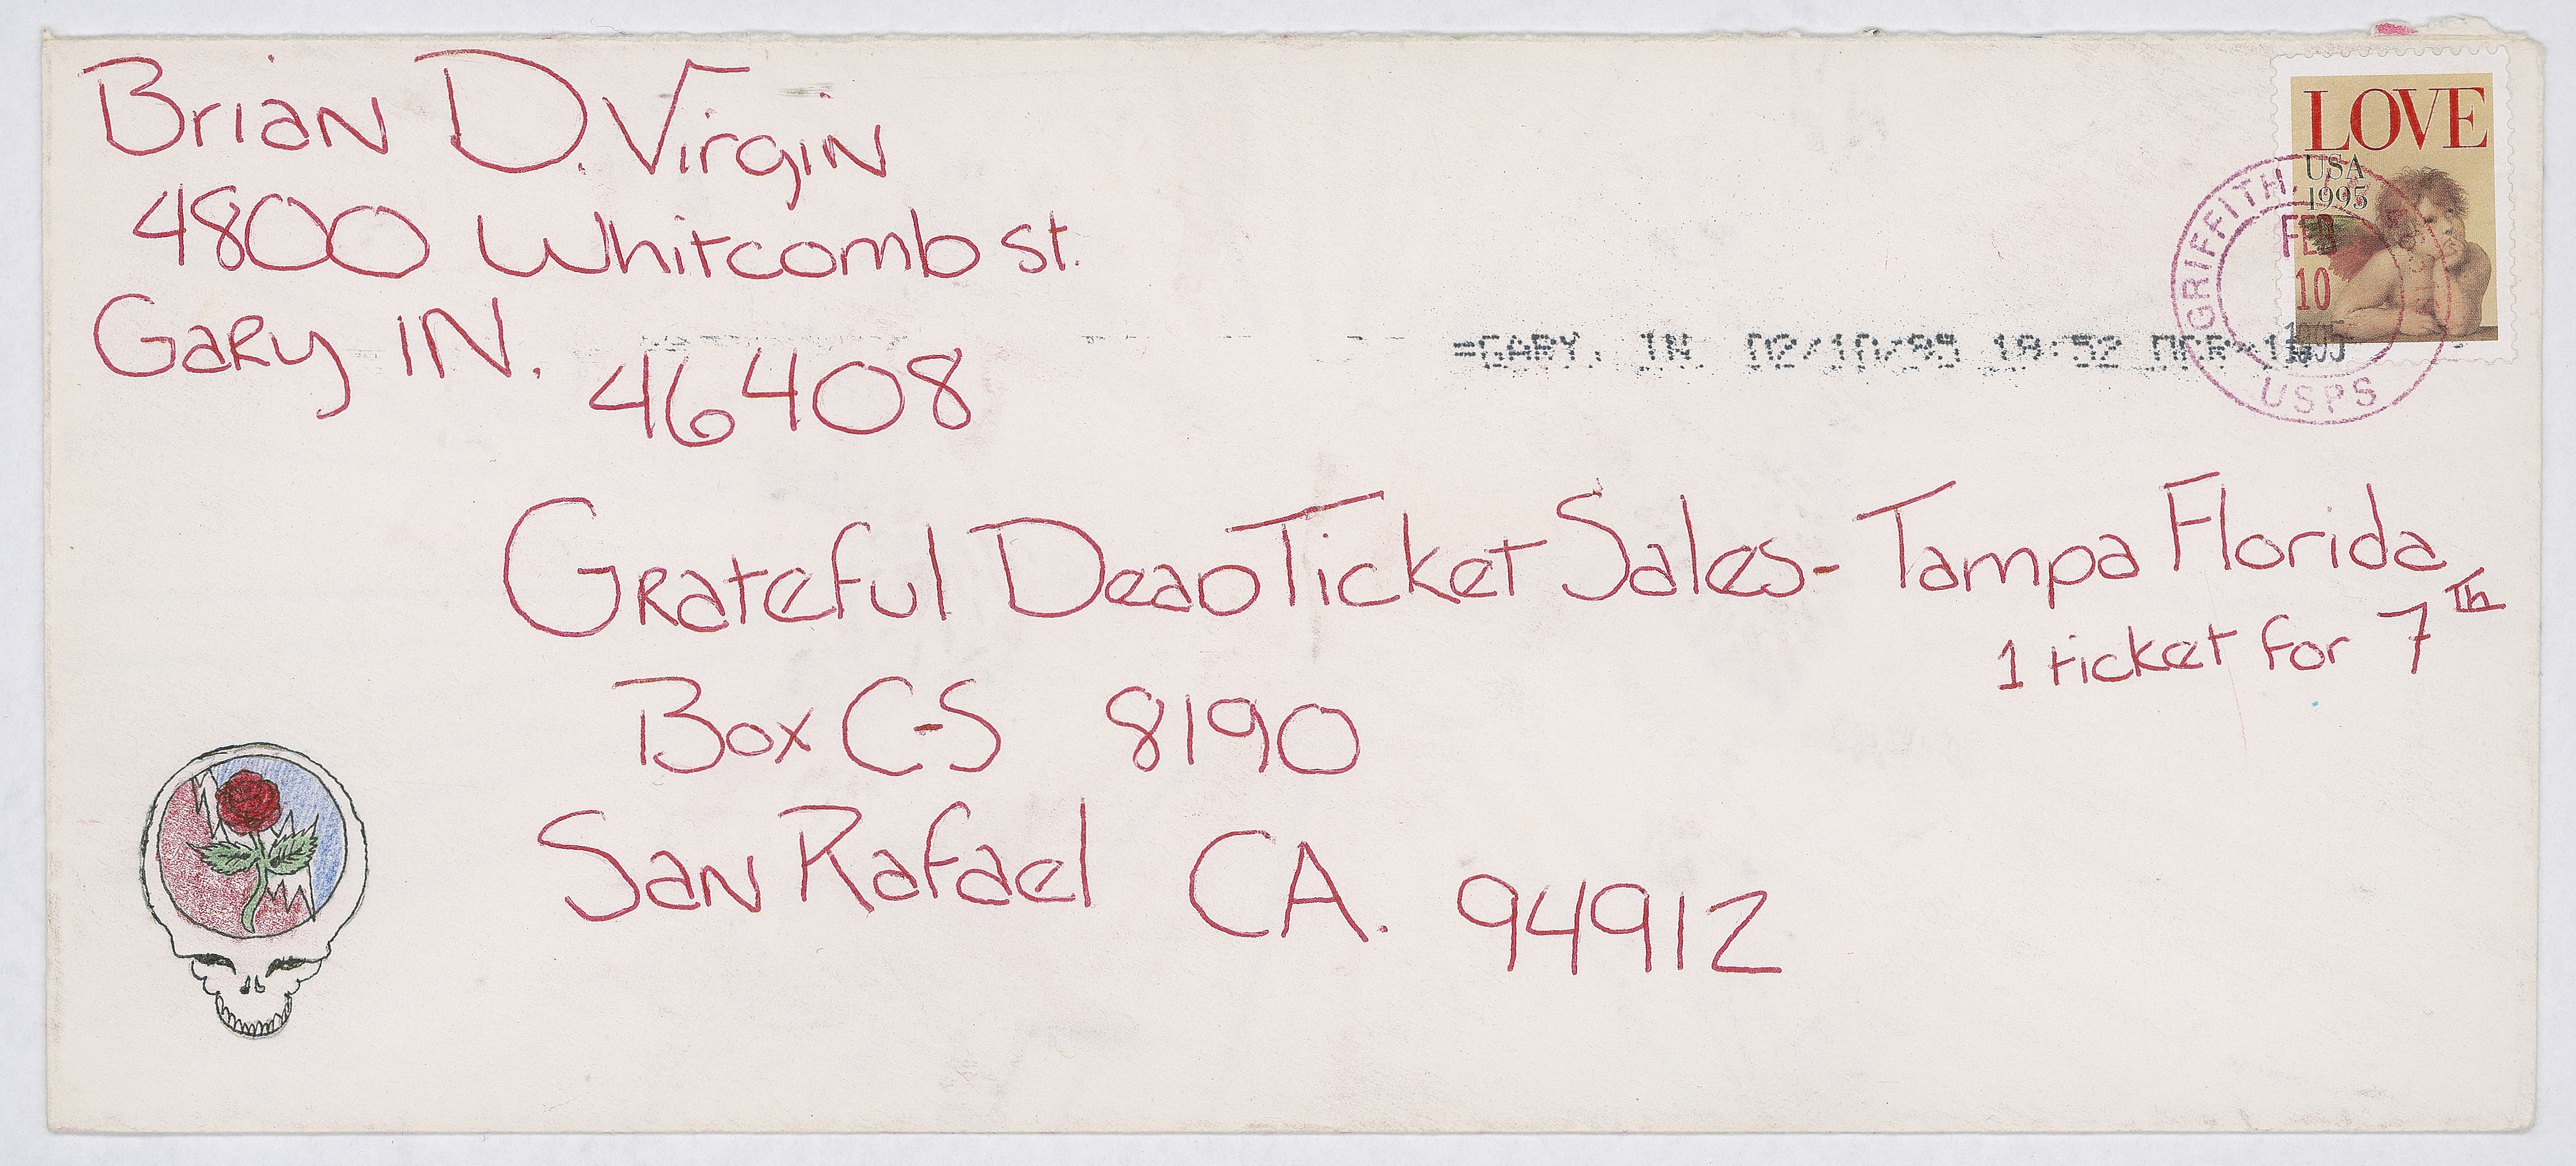 Brian D. Virgin
4800 Whitcomb St.
Gary IN.
46408
LOVE
USA
1995
GRIFFITH
FEB
10
1995
USPS
=GARY, IN 02/10/95 18:52
Grateful Dead Ticket Sales - Tampa Florida
1 ticket for 7th
Box C-S 8190
San Rafael CA. 94912